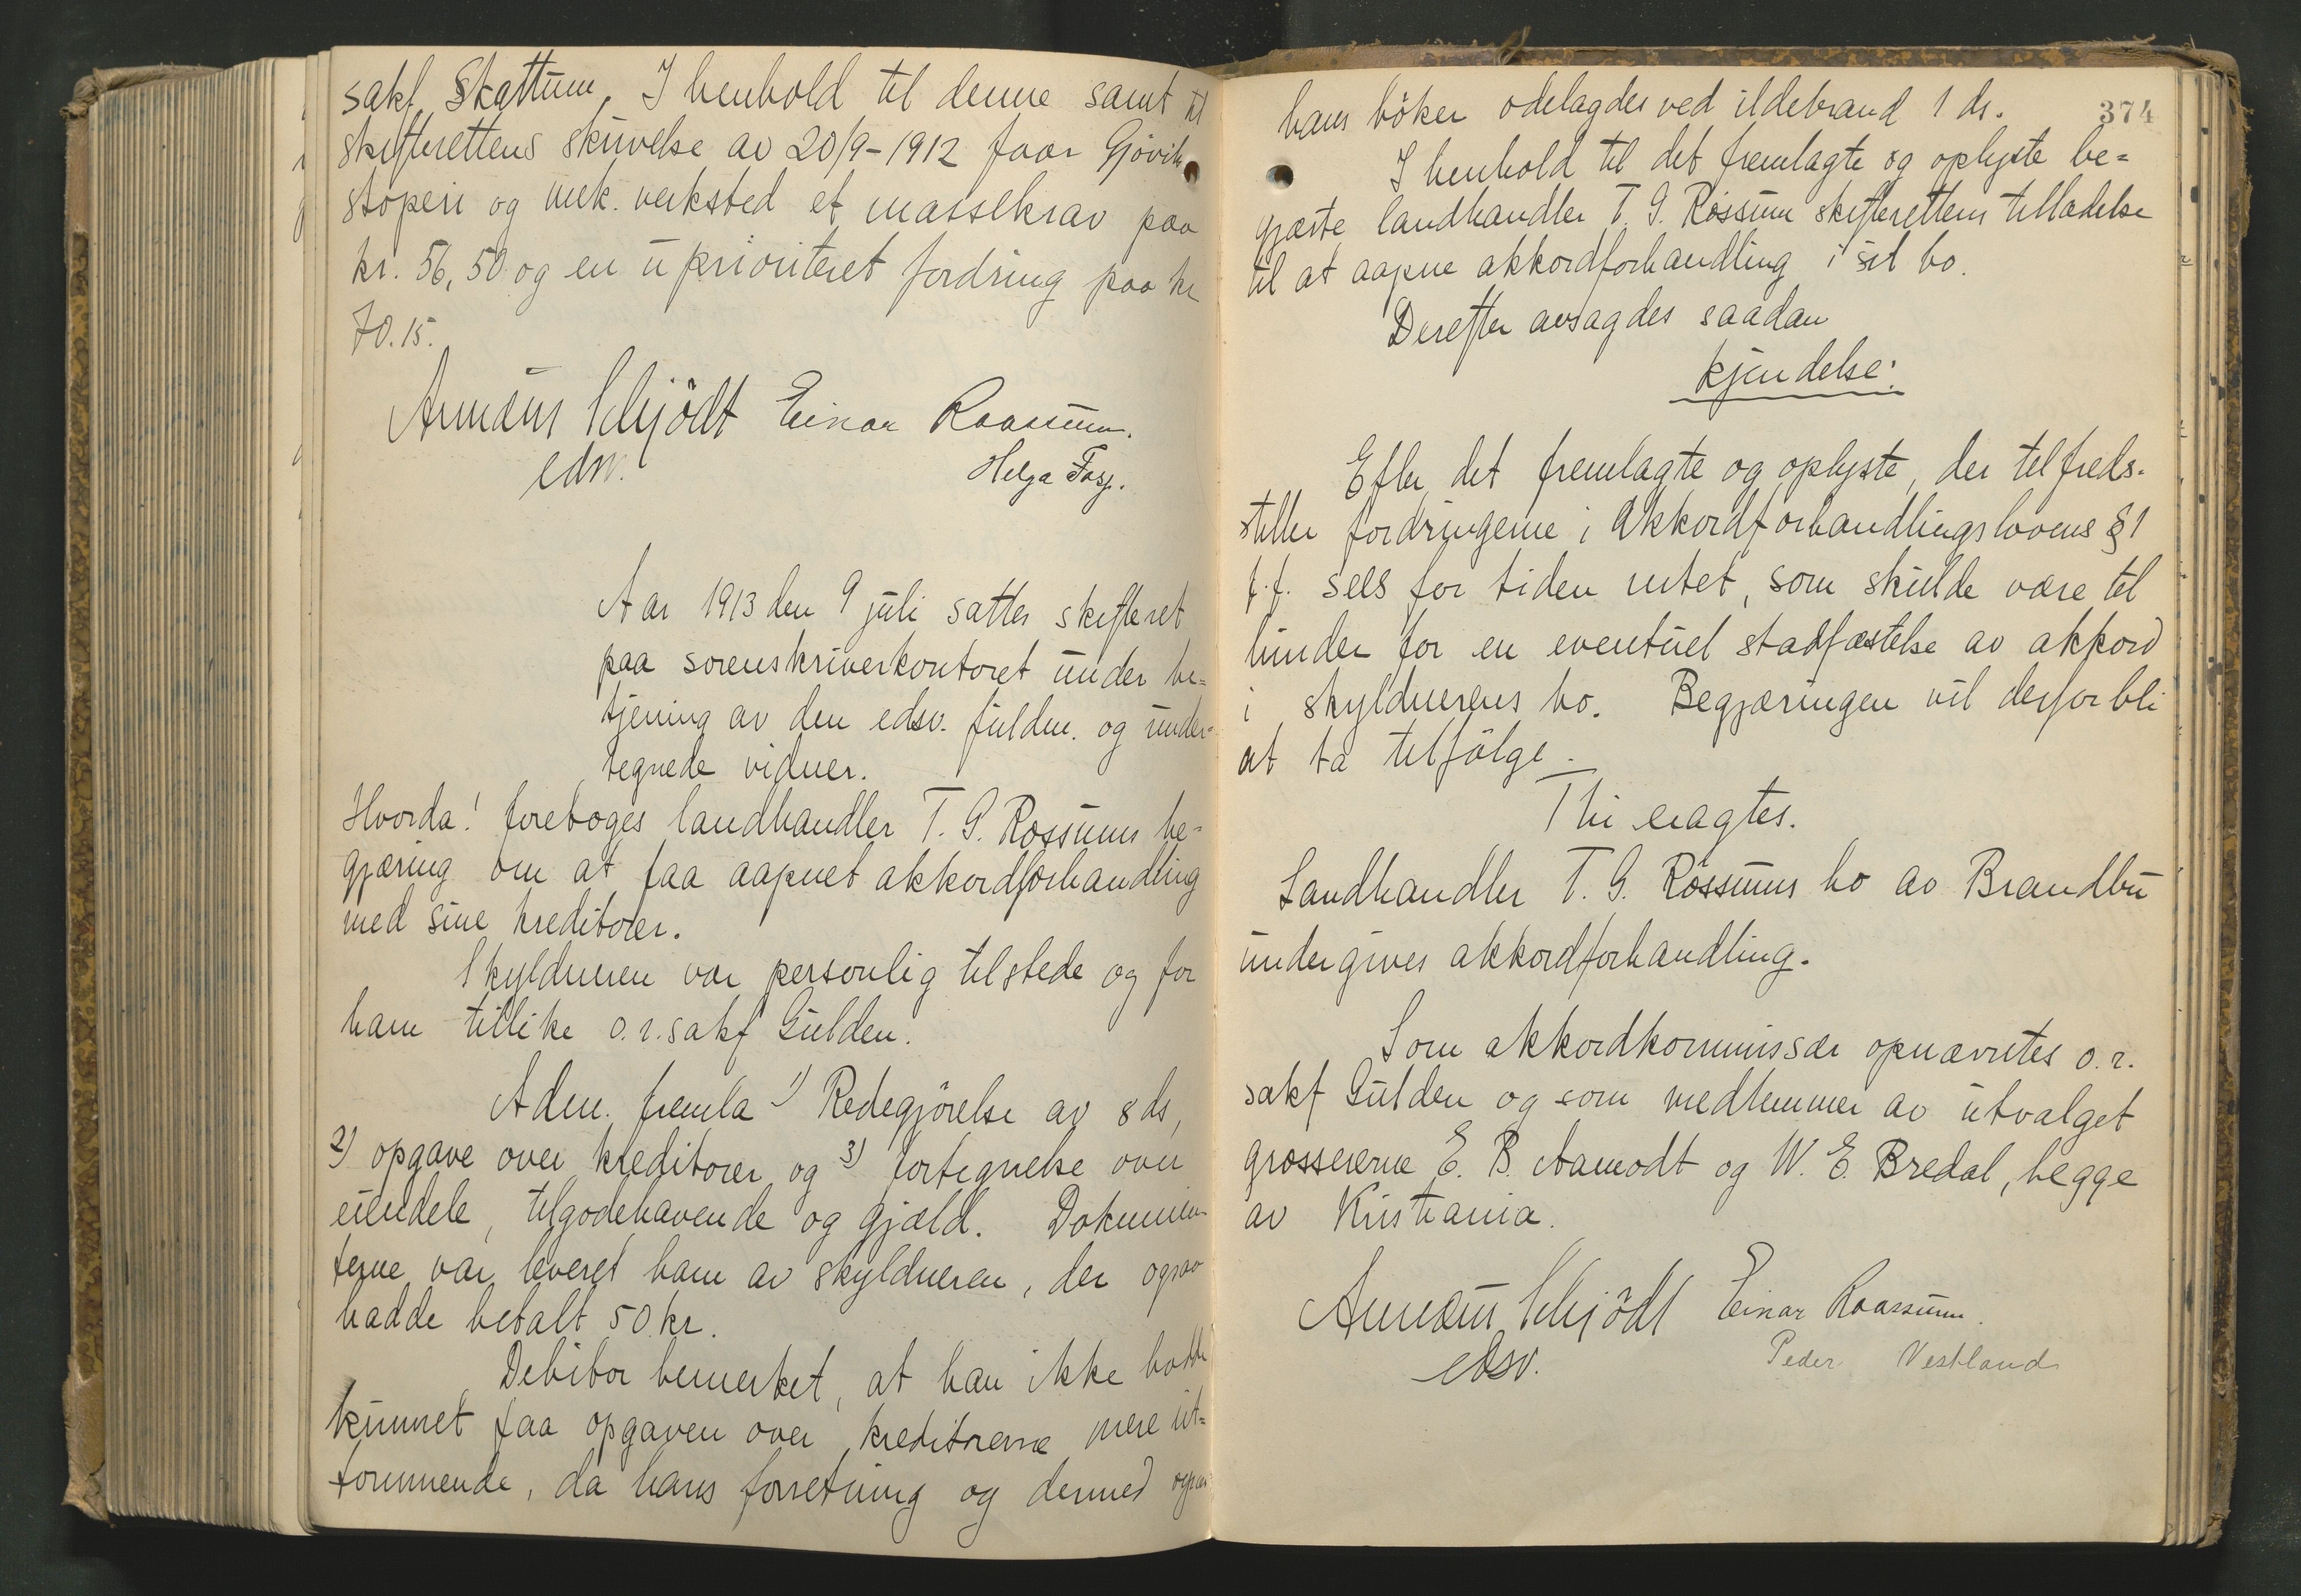 sakf. Skattum. I henhold til denne samt til
skifterettens skrivelse av 20/9-1912 faar Gjøvik
støperi og mek. verksted et massekrav paa
kr. 56,50 og en uprioriteret fordring paa kr
70.15.
Schjödt Einar Raassum.
edsv.
Helga
Aar 1913 den 9 juli sattes skifteret
paa sorenskriverkontoret under be=
tjening av den edsv. fuldm. og under=
tegnede vidner.
Hvorda! foretoges landhandler T. G. Røssums be=
gjæring om at faa aapnet akkordforhandling
med sine kreditorer.
Skyldneren var personlig tilstede og for
ham tillike o.r.sakf Gulden.
Adm. fremla 1) Redegjörelse av 8 ds,
2) opgave over kreditorer og 3) fortegnelse over
eiendele, tilgodehavende og gjæld. Dokumen
terne var leveret ham av skyldneren, der ogsaa
hadde betalt 50 kr.
Debitor bemerket, at han ikke hadde
kunnet faa opgaven over kreditorerne mere ut=
tømmende, da hans forretning og dermed ogsaa
374
hans böker ödelagdes ved ildebrand 1 ds.
I henhold til det fremlagte og oplyste be=
gjærte landhandler T. G. Røssum skifterettens tilladelse
til at aapne akkordforhandling i sit bo.
Derefter avsagdes saadan
kjendelse:
Efter det fremlagte og oplyste, der tilfreds-
stiller fordringerne i Akkordforhandlingslovens § 1
f.f. sees for tiden intet, som skulde være til
hinder for en eventuel stadfæstelse av akkord
i skyldnerens bo. Begjæringen vil derfor bli
at ta tilfölge.
Thi eragtes.
Landhandler T. G. Røssums bo av Brandbu
undergives akkordforhandling.
Som akkordkommissær opnævntes o.r.
sakf Gulden og som medlemmer av utvalget
grossererne E. B. Aamodt og W. E. Bredal, begge
av Kristiania.
Schjödt Einar Raassum.
edsv.
Peder Vestland